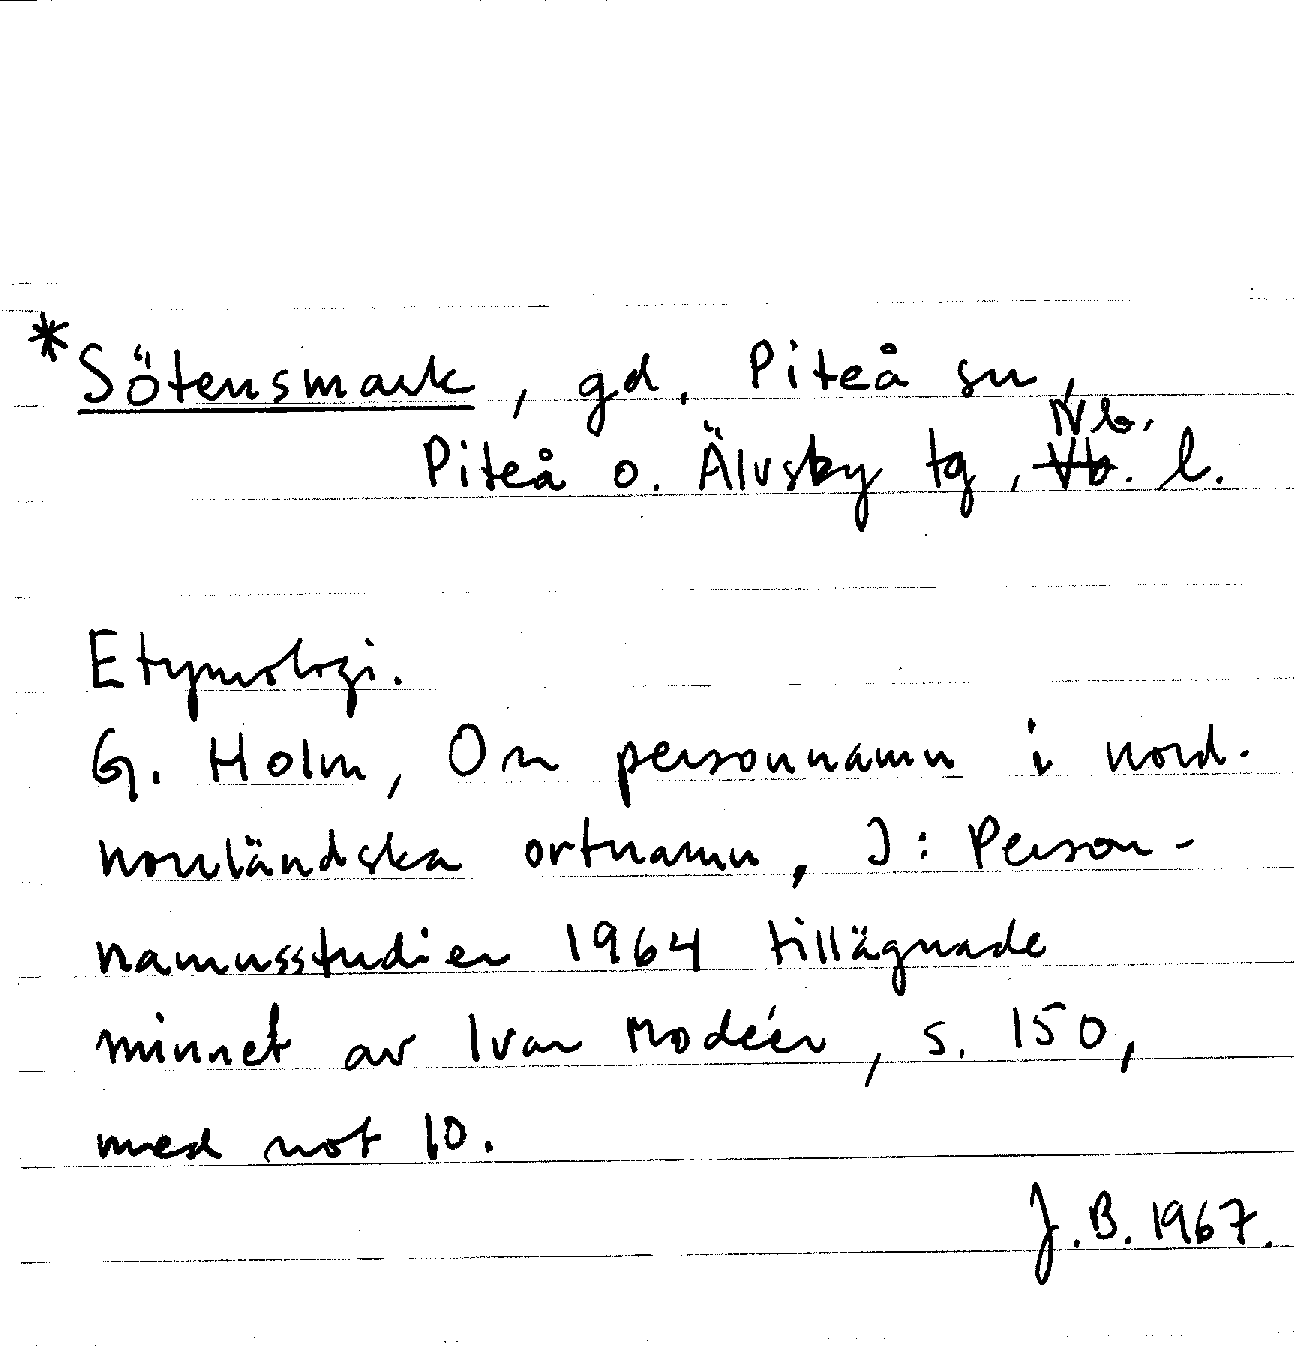 *Sötensmark, gd, Piteå sn,
Nb.
Piteå o. Älvsby tg, Vb. l.
Etymologi.
G. Holm, Om personnamn i nord-
norrländska ortnamn, I: Person-
namnsstudier 1964 tillägnade
minnet av Ivar Modéer, s. 150,
med not 10.
J.B. 1967.